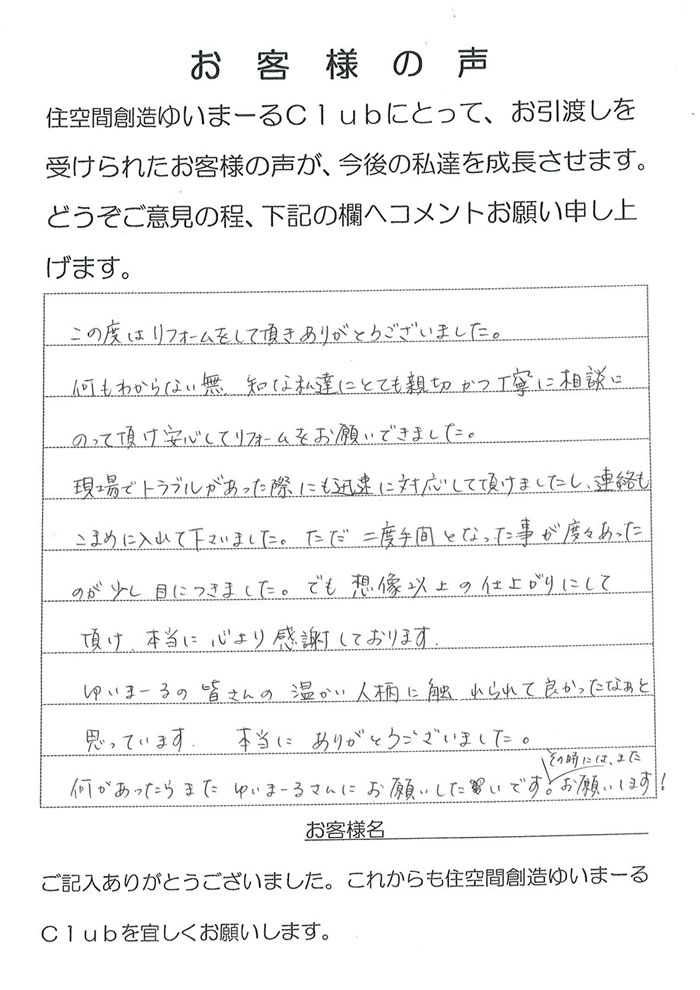 お客様の声
住空間創造ゆいまーるClubにとって、お引渡しを
受けられたお客様の声が、今後の私達を成長させます。
どうぞご意見の程、下記の欄へコメントお願い申し上
げます。
この度はリフォームをして頂きありがとうございました。
何もわからない無知な私達にとても親切かつ丁寧に相談に
のって頂け安心してリフォームをお願いできました。
現場でトラブルがあった際にも迅速に対応して頂けましたし、連絡も
こまめに入れて下さいました。ただ二度手間となった事が度々あった
のが少し目につきました。でも想像以上の仕上がりにして
頂け、本当に心より感謝しております。
ゆいまーるの皆さんの温かい人柄に触れられて良かったなぁと
思っています。本当にありがとうございました。
その時には、また
何があったらまたゆいまーるさんにお願いしたいです。お願いします!
お客様名
ご記入ありがとうございました。これからも住空間創造ゆいまーる
Clubを宜しくお願いします。